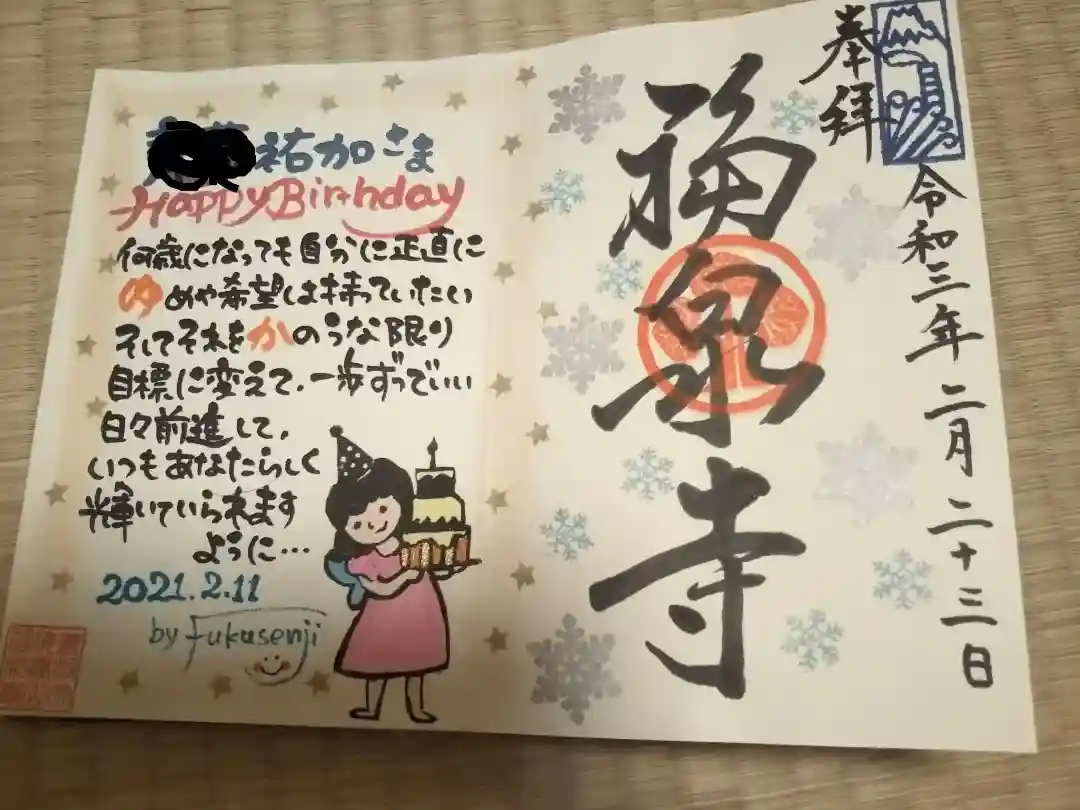 奉拝
令和三年二月二十三日
福泉寺
祐加さま
Happy Birthday
何歳になっても自分に正直に
ゆめや希望は持っていたい
そしてそれをかのうな限り
目標に変えて、一歩ずつでいい
日々前進して、
いつもあなたらしく
輝いていられます
ように…
2021.2.11
by Fukusenji